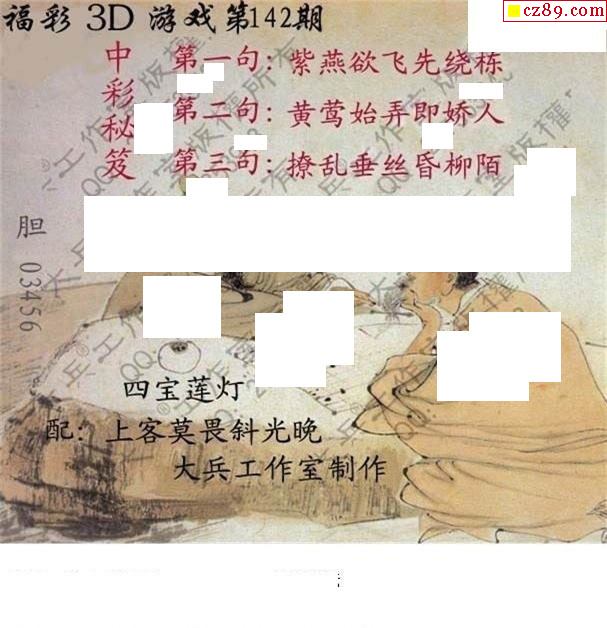 福彩3D游戏第142期
cz89.com
中彩秘笈
第一句：紫燕欲飞先绕栋
第二句：黄莺始弄即娇人
第三句：撩乱垂丝昏柳陌
胆 03456
四宝莲灯
配：上客莫畏斜光晚
大兵工作室制作